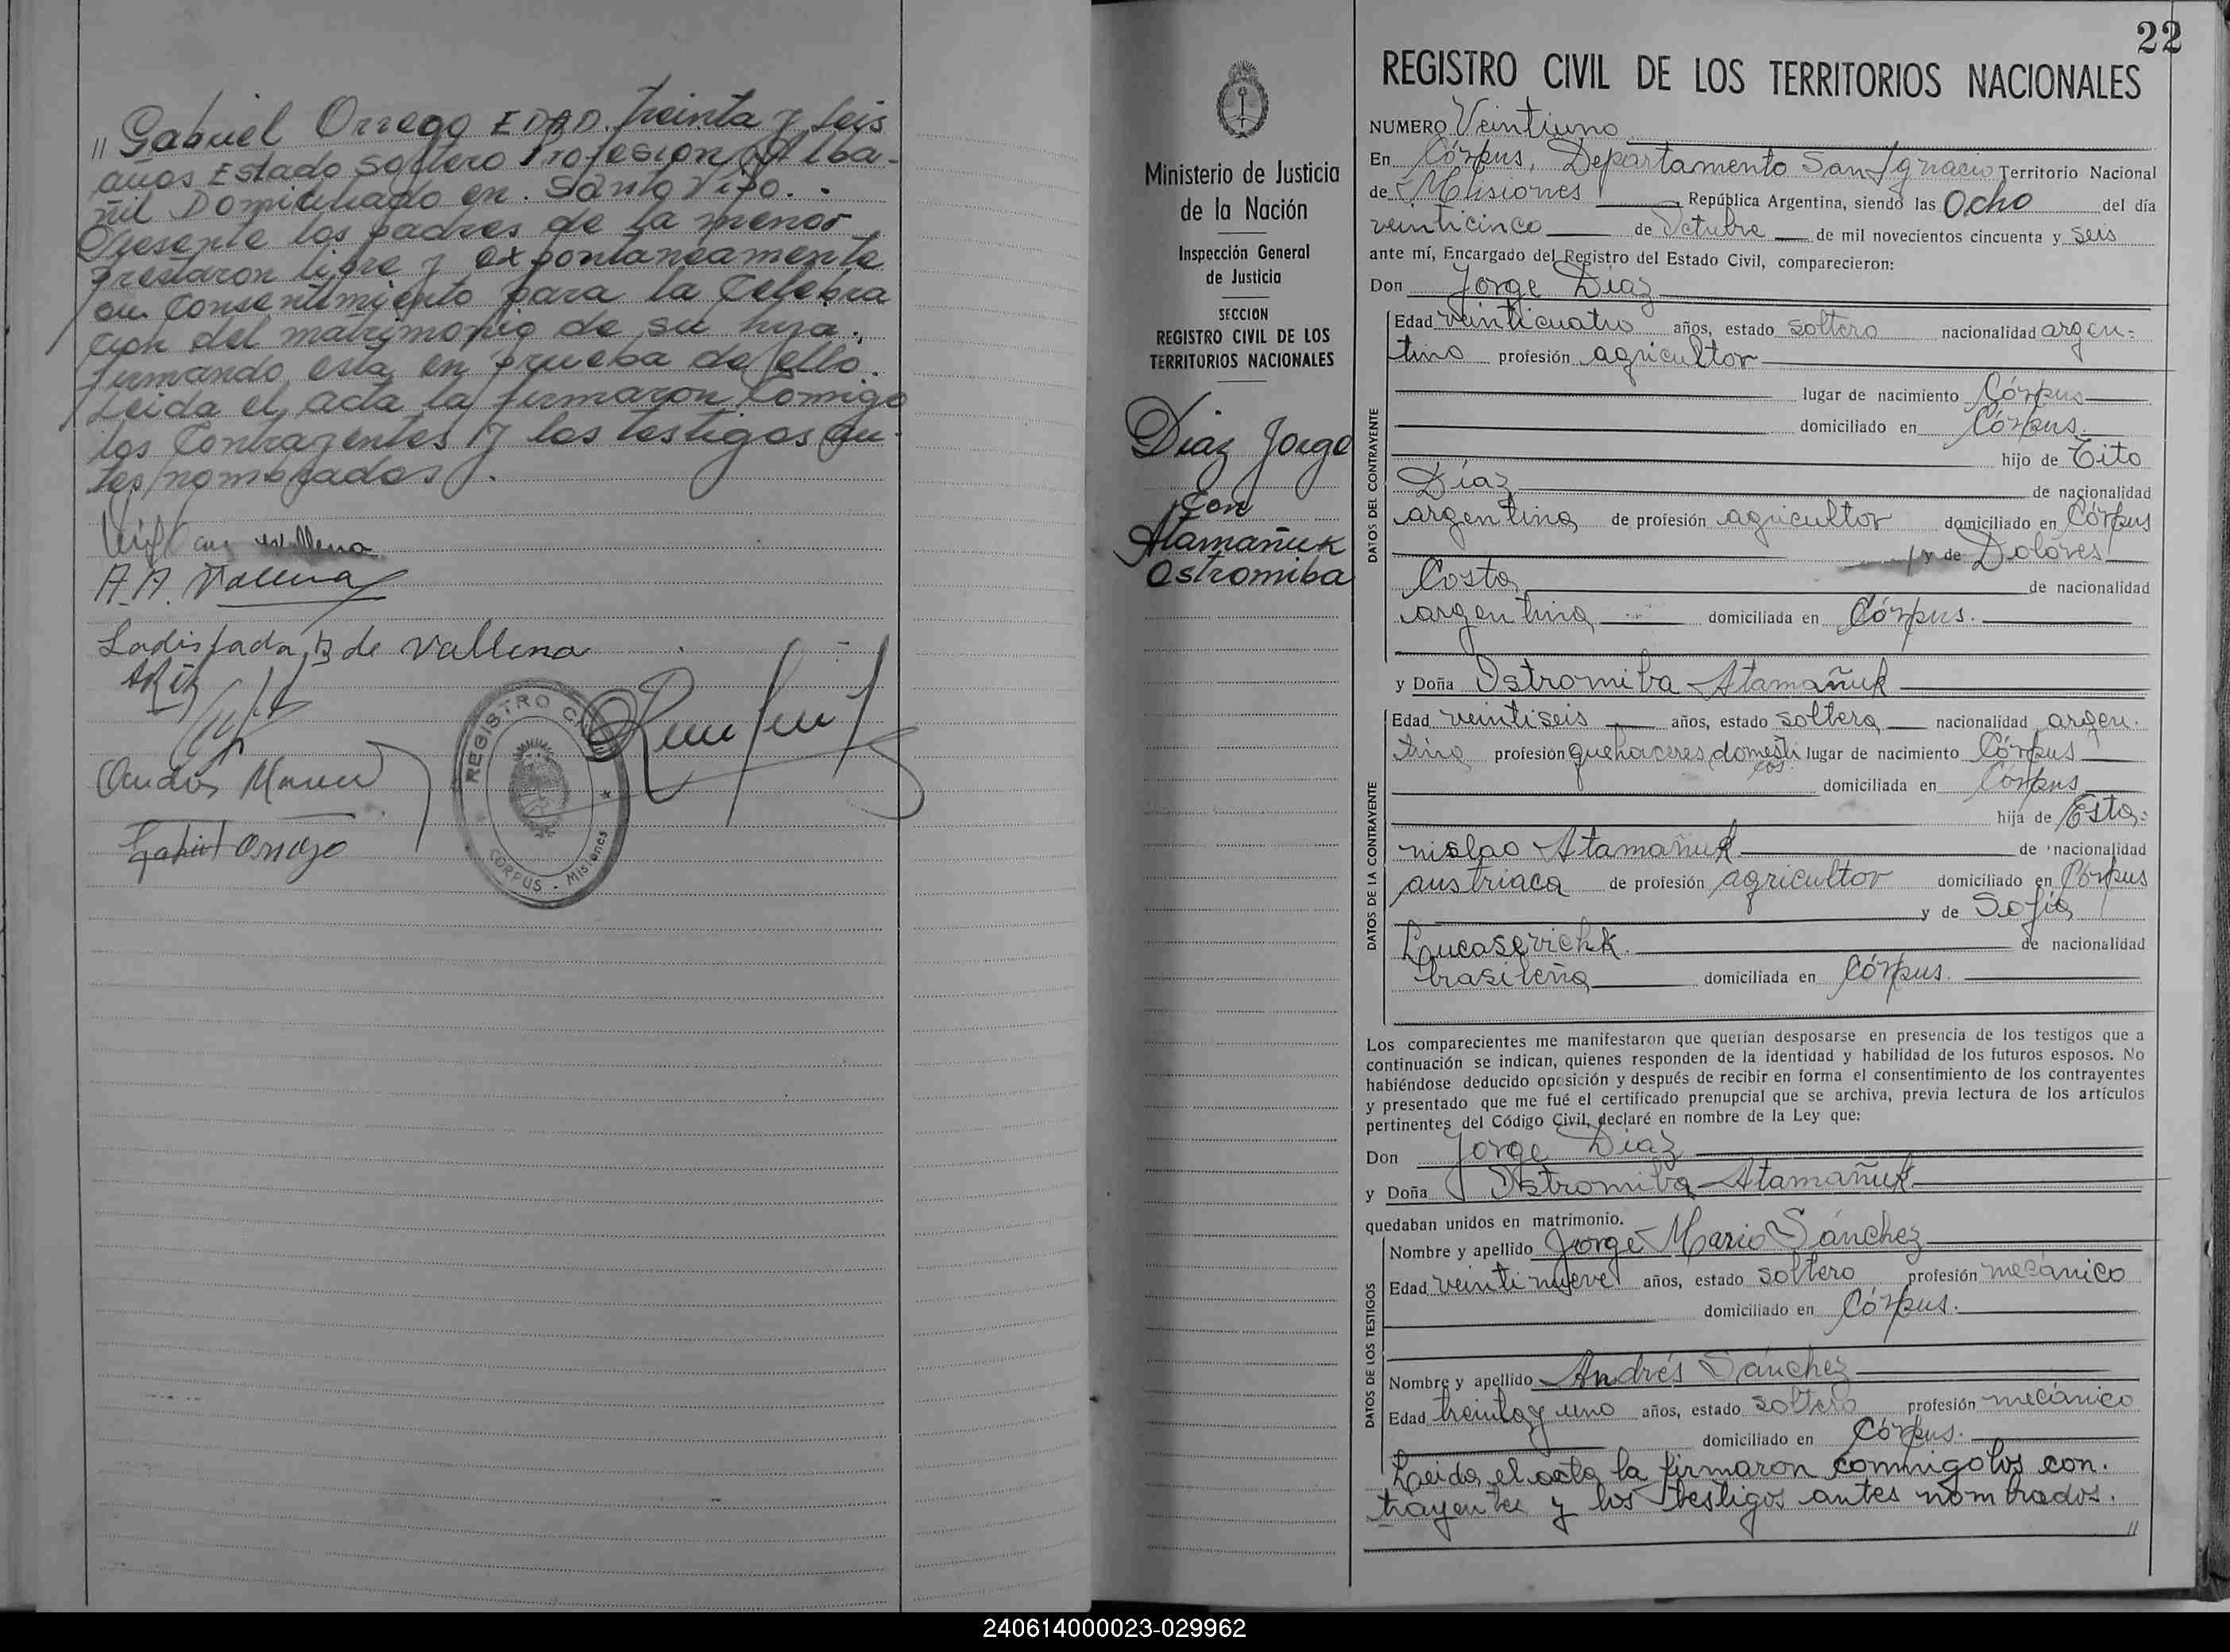 " Gabriel Orrego EDAD. treinta y seis
años Estado soltero Profesion Alba-
ñil Domiciliado en. Santo Pipo. -
Presente los padres de la menor
prestaron libre y expontaneamente
su consentimiento para la Celebra
cion del matrimonio de su hija.
firmando esta en prueba de ello.
Leida el acta la firmaron Comigo
los Contrayentes y los testigos an-
tes nombrados.
A. A. Vallena
Ladislada B de Vallena
Gabriel Orrego
REGISTRO CIVIL
CORPUS - Misiones
22
Ministerio de Justicia
de la Nación
Inspección General
de Justicia
SECCION
REGISTRO CIVIL DE LOS
TERRITORIOS NACIONALES
Diaz Jorge
Con
Atamañuk
Ostromiba
REGISTRO CIVIL DE LOS TERRITORIOS NACIONALES
NUMERO Veintiuno
En Córpus, Departamento San Ignacio Territorio Nacional
de Misiones República Argentina, siendo las Ocho del día
veinticinco de Octubre de mil novecientos cincuenta y seis
ante mí, Encargado del Registro del Estado Civil, comparecieron:
Don Jorge Díaz
DATOS DEL CONTRAYENTE
Edad veinticuatro años, estado soltero nacionalidad argen=
tina profesión agricultor
lugar de nacimiento Córpus
domiciliado en Córpus.
hijo de Tito
Díaz de nacionalidad
argentina de profesión agricultor domiciliado en Córpus
y de Dolores
Costa de nacionalidad
argentina domiciliada en Córpus.
y Doña Ostromiba Atamañuk
DATOS DE LA CONTRAYENTE
Edad veintiseis años, estado soltera nacionalidad argen-
tina profesión quehaceres domesti lugar de nacimiento Córpus
cos.
domiciliada en Córpus
hija de Esta=
nislao Atamañuk de nacionalidad
austriaca de profesión agricultor domiciliado en Córpus
y de Sofía
Lucasevichk. de nacionalidad
brasileña domiciliada en Córpus.
Los comparecientes me manifestaron que querían desposarse en presencia de los testigos que a
continuación se indican, quienes responden de la identidad y habilidad de los futuros esposos. No
habiéndose deducido oposición y después de recibir en forma el consentimiento de los contrayentes
y presentado que me fué el certificado prenupcial que se archiva, previa lectura de los artículos
pertinentes del Código Civil, declaré en nombre de la Ley que:
Don Jorge Diaz
y Doña Ostromiba Atamañuk
quedaban unidos en matrimonio.
DATOS DE LOS TESTIGOS
Nombre y apellido Jorge Mario Sánchez
Edad veintinueve años, estado soltero profesión mecánico
domiciliado en Córpus.
Nombre y apellido Andrés Sánchez
Edad treinta y uno años, estado soltero profesión mecánico
domiciliado en Córpus.
Leida el acta la firmaron commigo los con-
trayentes y los testigos antes nombrados.
"
240614000023-029962